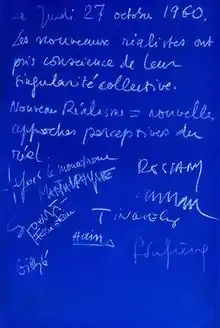 Le Jeudi 27 octobre 1960.
Les nouveaux réalistes ont
pris conscience de leur
singularité collective.
Nouveau Réalisme = nouvelles
approches perceptives du
réel
Yves le monochrome
RESTANY
Martial Raysse
Arman
TINGUELY
DUFRÊNE
Hains
Spoerri
Villeglé